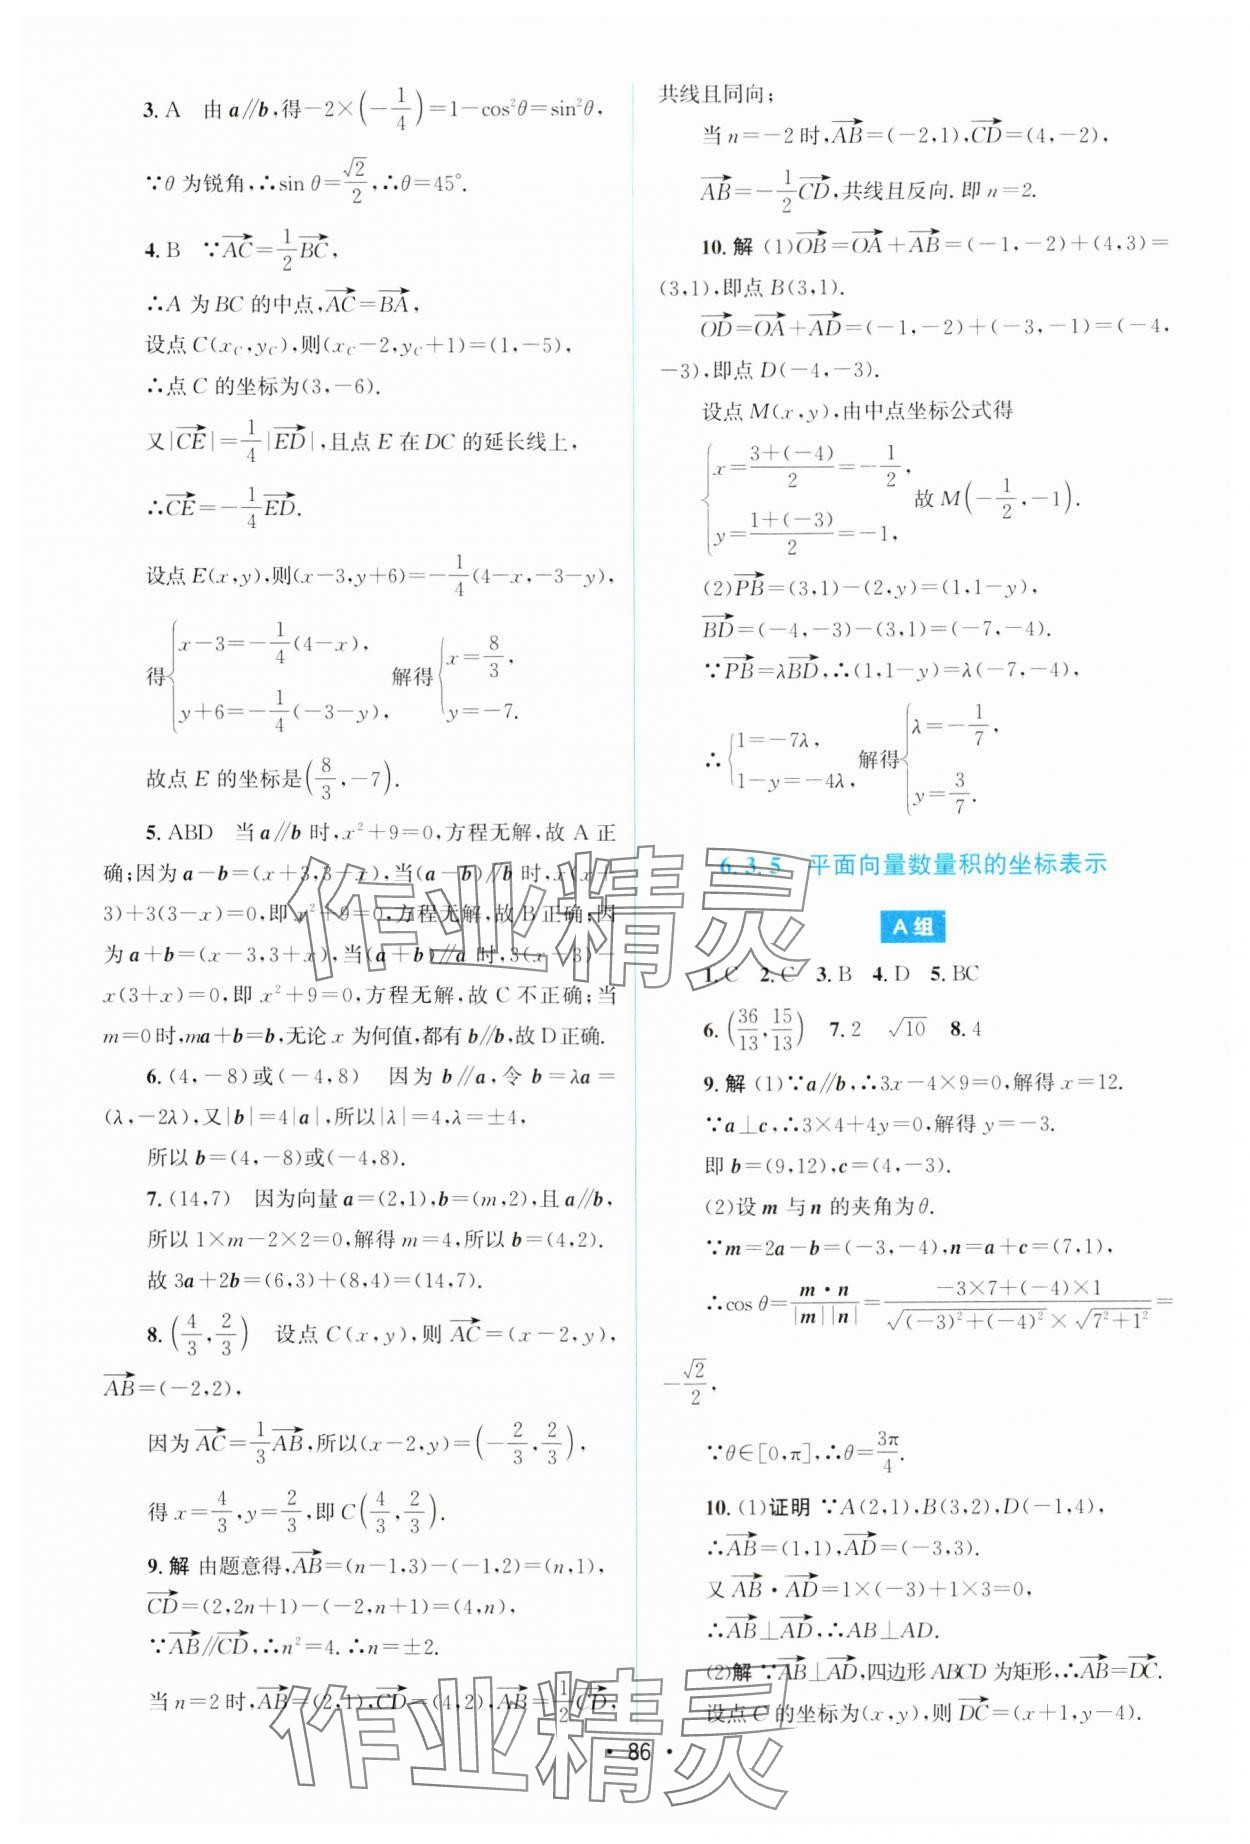 3. A 由 a∥b,得−2×(−1/4)=1−cos²θ=sin²θ,
∵θ 为锐角,∴sin θ=√2/2,∴θ=45°.
4. B ∵AC→=1/2 BC→,
∴A 为 BC 的中点,AC→=BA→,
设点 C(x_C,y_C),则(x_C−2,y_C+1)=(1,−5),
∴点 C 的坐标为(3,−6).
又|CE→|=1/4|ED→|,且点 E 在 DC 的延长线上,
∴CE→=−1/4 ED→.
设点 E(x,y),则(x−3,y+6)=−1/4(4−x,−3−y),
得{x−3=−1/4(4−x), y+6=−1/4(−3−y), 解得{x=8/3, y=−7.
故点 E 的坐标是(8/3,−7).
5. ABD 当 a∥b 时,x²+9=0,方程无解,故 A 正
确;因为 a−b=(x+3,3−x),当(a−b)∥b 时,x(x+
3)+3(3−x)=0,即 x²+9=0,方程无解,故 B 正确;因
为 a+b=(x−3,3+x),当(a+b)∥a 时,3(x−3)−
x(3+x)=0,即 x²+9=0,方程无解,故 C 不正确;当
m=0时,ma+b=b,无论 x 为何值,都有 b∥b,故 D 正确.
6. (4,−8)或(−4,8) 因为 b∥a,令 b=λa=
(λ,−2λ),又|b|=4|a|,所以|λ|=4,λ=±4,
所以 b=(4,−8)或(−4,8).
7. (14,7) 因为向量 a=(2,1),b=(m,2),且 a∥b,
所以 1×m−2×2=0,解得 m=4,所以 b=(4,2).
故 3a+2b=(6,3)+(8,4)=(14,7).
8. (4/3,2/3) 设点 C(x,y),则 AC→=(x−2,y),
AB→=(−2,2),
因为 AC→=1/3 AB→,所以(x−2,y)=(−2/3,2/3),
得 x=4/3,y=2/3,即 C(4/3,2/3).
9. 解 由题意得,AB→=(n−1,3)−(−1,2)=(n,1),
CD→=(2,2n+1)−(−2,n+1)=(4,n),
∵AB→∥CD→,∴n²=4.∴n=±2.
当 n=2 时,AB→=(2,1),CD→=(4,2),AB→=1/2 CD→,
共线且同向;
当 n=−2 时,AB→=(−2,1),CD→=(4,−2),
AB→=−1/2 CD→,共线且反向.即 n=2.
10. 解 (1)OB→=OA→+AB→=(−1,−2)+(4,3)=
(3,1),即点 B(3,1).
OD→=OA→+AD→=(−1,−2)+(−3,−1)=(−4,
−3),即点 D(−4,−3).
设点 M(x,y),由中点坐标公式得
{x=(3+(−4))/2=−1/2, y=(1+(−3))/2=−1, 故 M(−1/2,−1).
(2)PB→=(3,1)−(2,y)=(1,1−y),
BD→=(−4,−3)−(3,1)=(−7,−4).
∵PB→=λBD→,∴(1,1−y)=λ(−7,−4),
∴{1=−7λ, 1−y=−4λ, 解得{λ=−1/7, y=3/7.
6.3.5 平面向量数量积的坐标表示
A组
1. C 2. C 3. B 4. D 5. BC
6. (36/13,15/13) 7. 2 √10 8. 4
9. 解 (1)∵a∥b,∴3x−4×9=0,解得 x=12.
∵a⊥c,∴3×4+4y=0,解得 y=−3.
即 b=(9,12),c=(4,−3).
(2)设 m 与 n 的夹角为 θ.
∵m=2a−b=(−3,−4),n=a+c=(7,1),
∴cos θ=m·n/(|m||n|)=(−3×7+(−4)×1)/(√((−3)²+(−4)²)×√(7²+1²))=
−√2/2,
∵θ∈[0,π],∴θ=3π/4.
10. (1)证明 ∵A(2,1),B(3,2),D(−1,4),
∴AB→=(1,1),AD→=(−3,3).
又 AB→·AD→=1×(−3)+1×3=0,
∴AB→⊥AD→,∴AB⊥AD.
(2)解 ∵AB→⊥AD→,四边形 ABCD 为矩形,∴AB→=DC→.
设点 C 的坐标为(x,y),则 DC→=(x+1,y−4).
· 86 ·
作业精灵
作业精灵